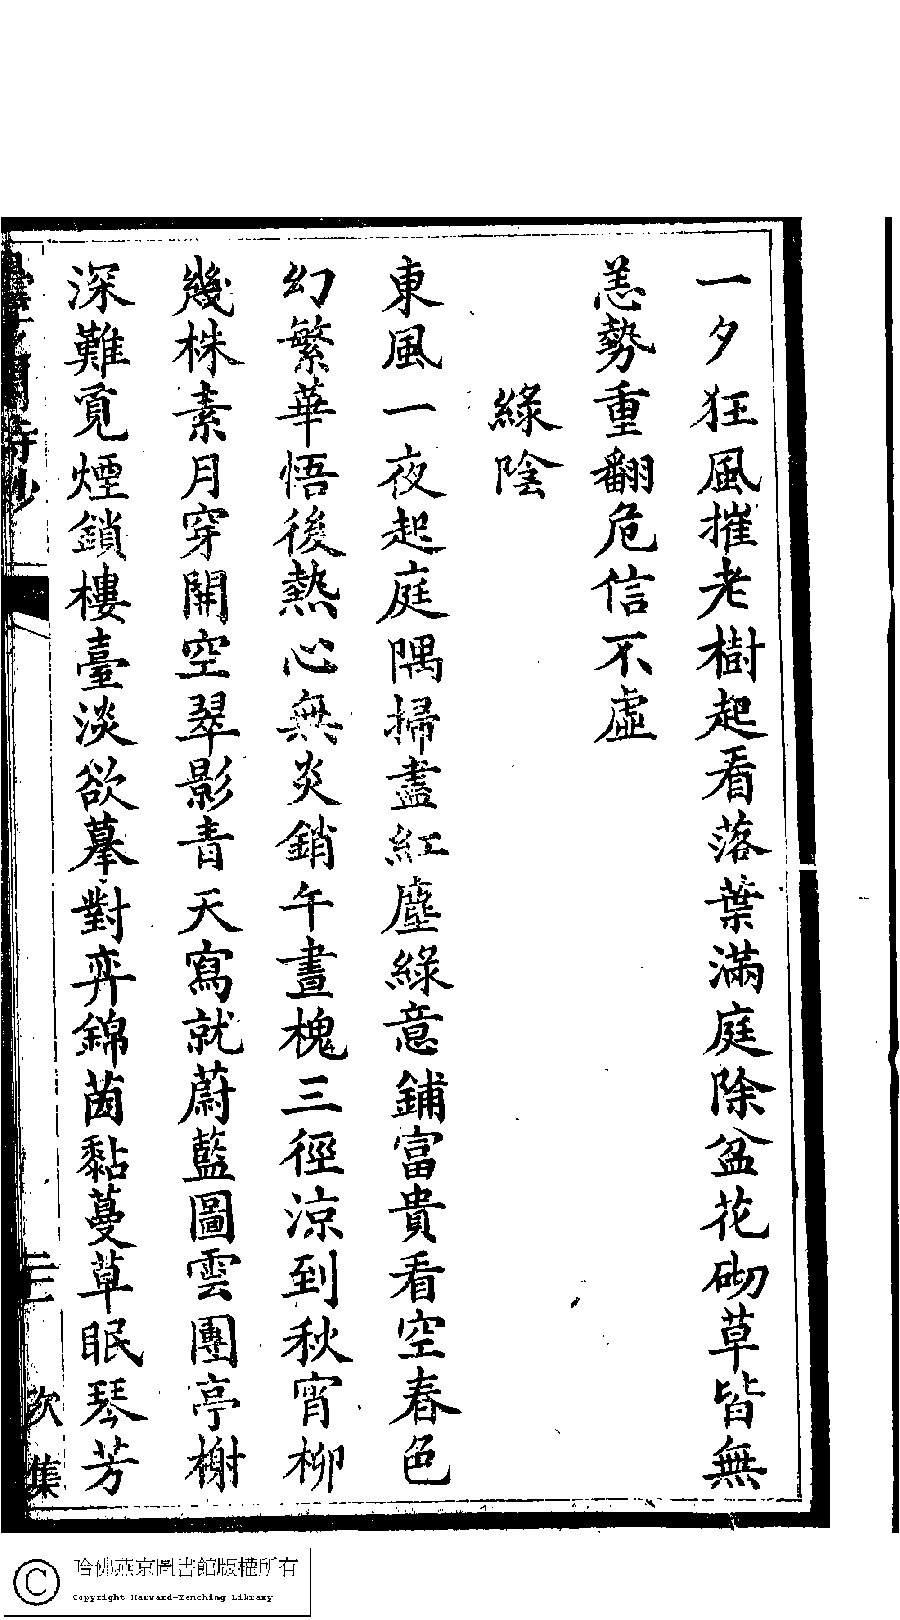 一夕狂風摧老樹起看落葉滿庭除盆花砌草皆無
恙勢重翻危信不虛
綠陰
東風一夜起庭隅掃盡紅塵綠意鋪富貴看空春色
幻繁華悟後熱心無炎銷午晝槐三徑涼到秋宵柳
幾株素月穿開空翠影青天寫就蔚藍圖雲團亭榭
深難覓煙鎖樓臺淡欲摹對弈錦茵黏蔓草眠琴芳
詩鈔 二 次集
哈佛燕京圖書館版權所有
Copyright Harvard-Yenching Library